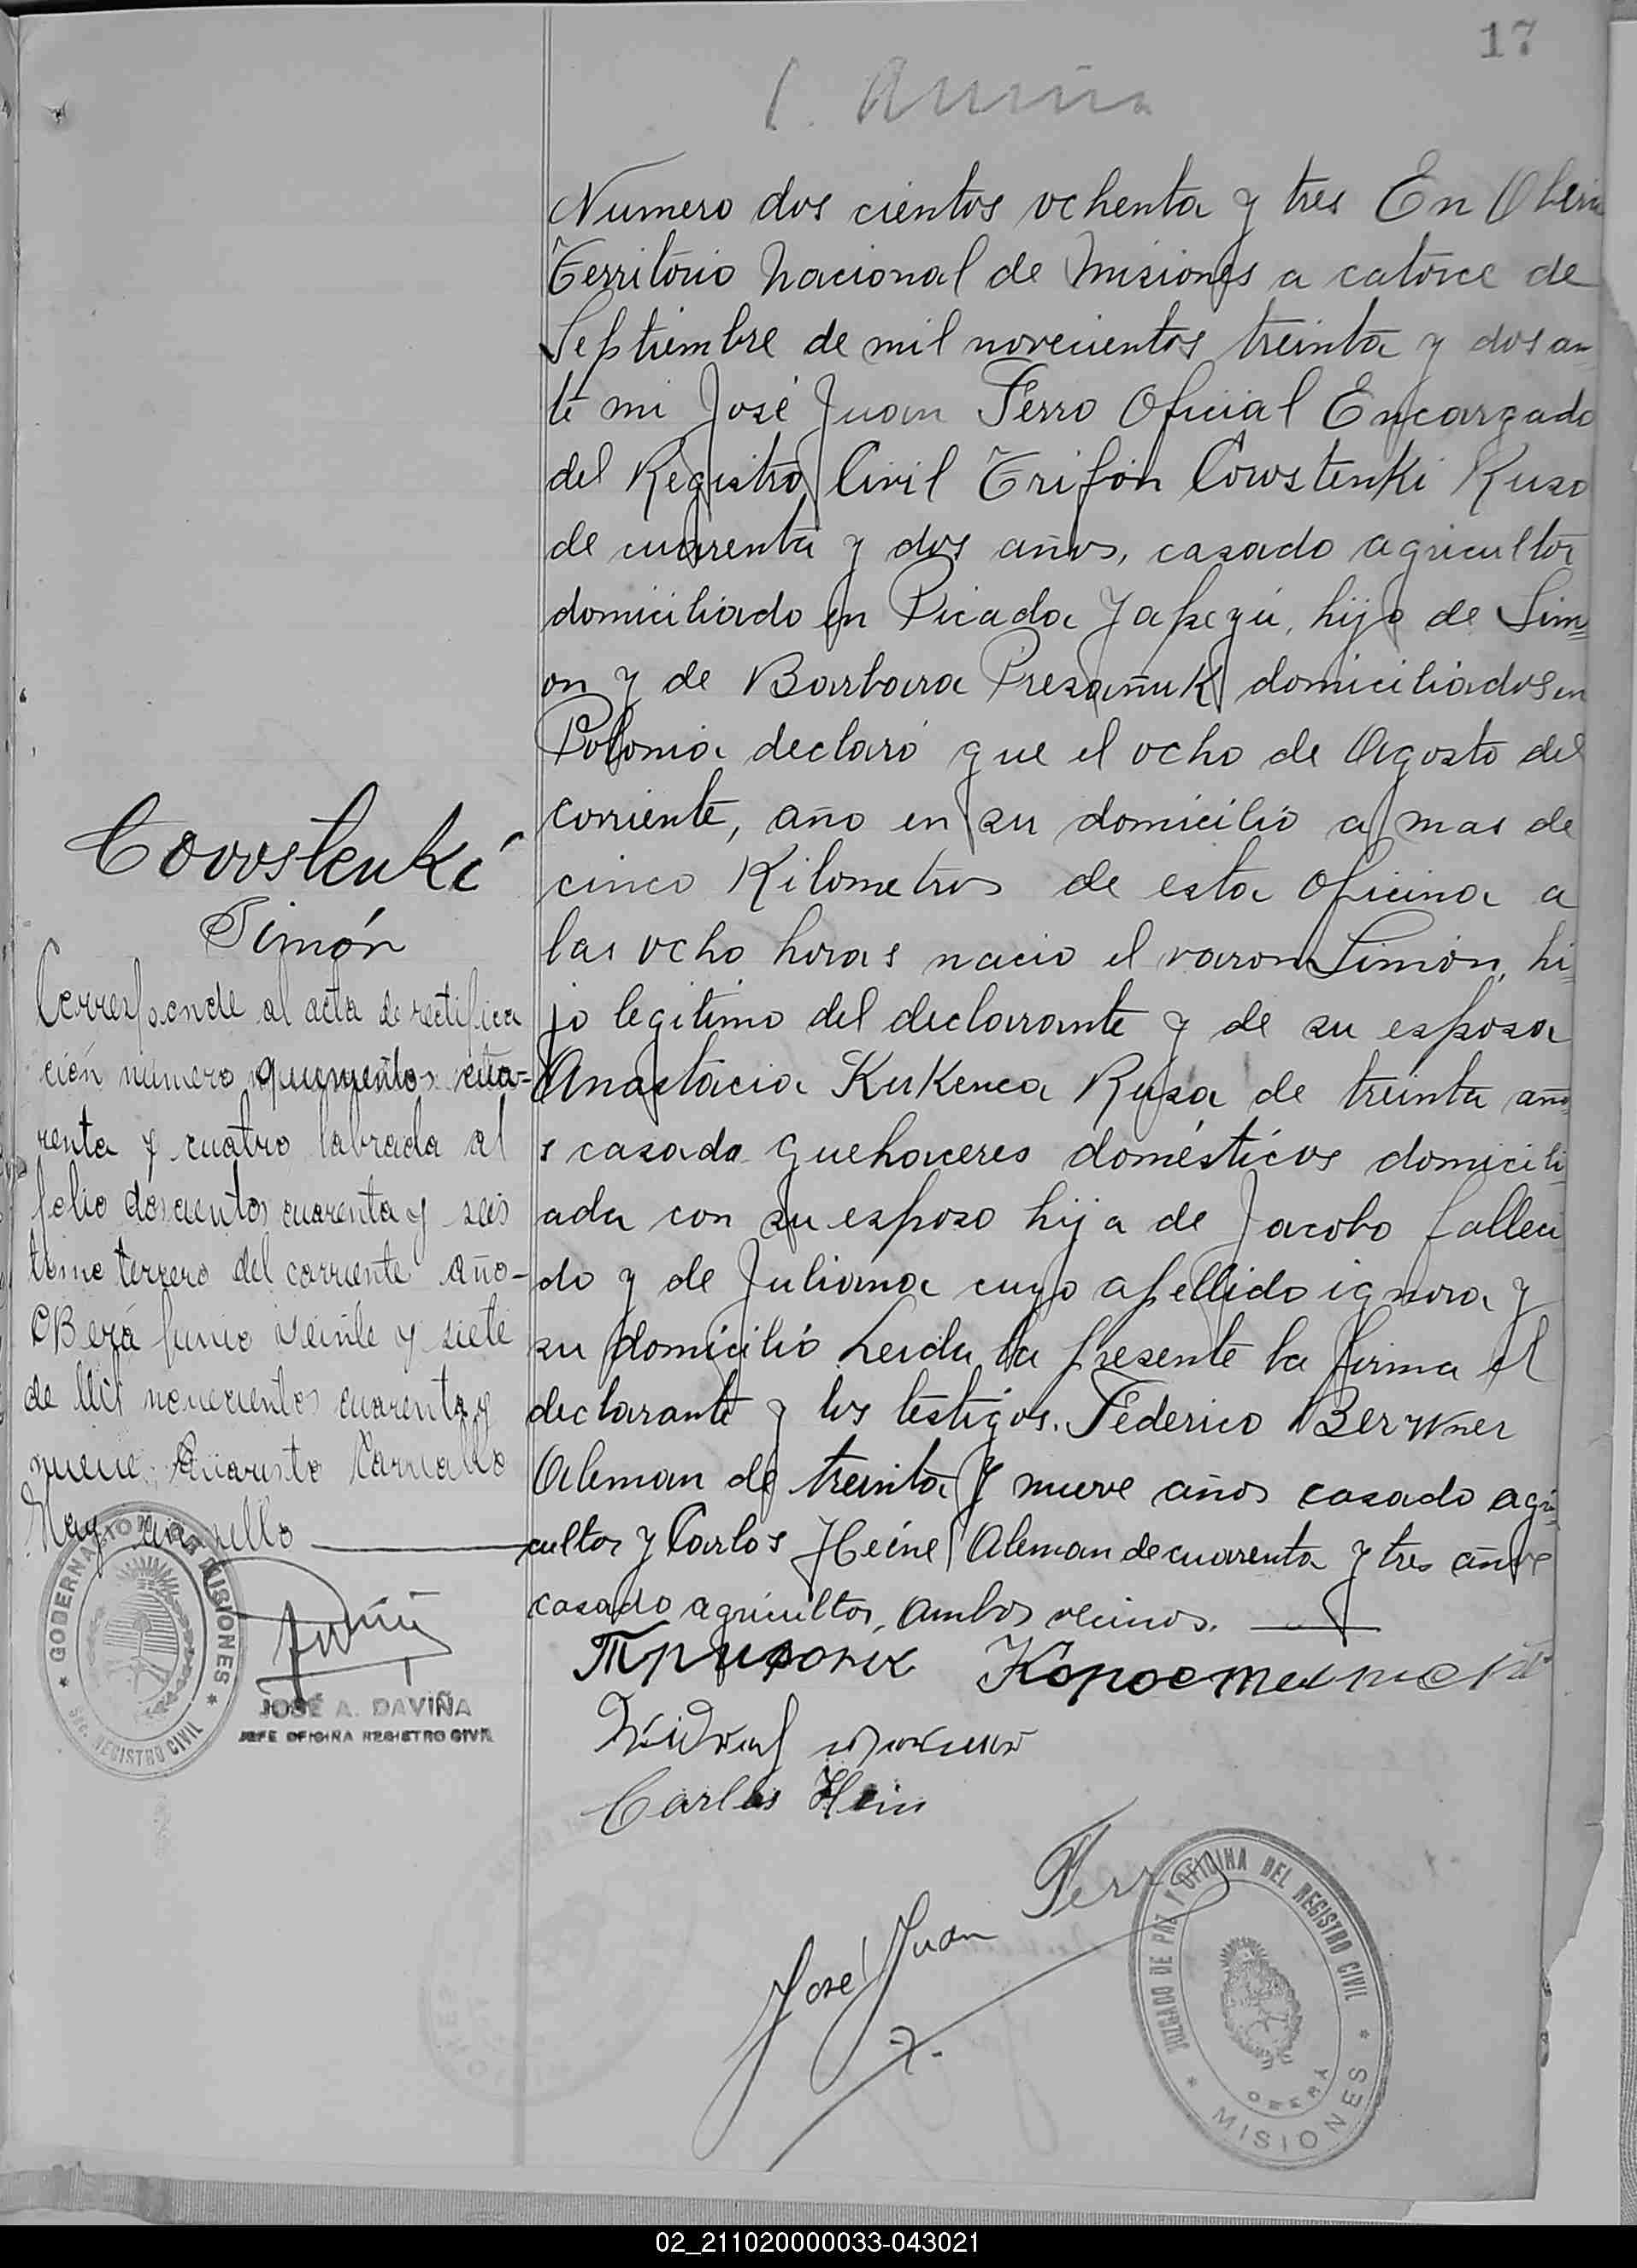 17
Numero dos cientos ochenta y tres En Oberá
Territorio Nacional de Misiones a catorce de
Septiembre de mil novecientos treinta y dos an=
te mi José Juan Ferro Oficial Encargado
del Registro Civil Trifón Cowstenki Ruso
de cuarenta y dos años, casado agricultor
domiciliado en Picada Yapeyú, hijo de Sim=
on y de Barbara Presañuk domiciliados en
Polonia declaró que el ocho de Agosto del
corriente, año en su domicilio a mas de
cinco Kilometros de esta oficina a
las ocho horas nacio el varon Simón, hi=
jo legitimo del declarante y de su esposa
Anastacia Kukenca Rusa de treinta año
s casada quehaceres domésticos domicili
ada con su esposo hija de Jacobo falleci
do y de Juliana cuyo apellido ignora y
su domicilio Leida la presente la firma el
declarante y los testigos. Federico
Aleman de treinta y nueve años casado agri=
cultor y Carlos Heine Aleman de cuarenta y tres años
casado agricultor, ambos vecinos.
Трифон
Carlos Hein
José Juan Ferro
JUZGADO DE PAZ Y OFICINA DEL REGISTRO CIVIL
OBERÁ
* MISIONES *
Cowstenki
Simón
Corresponde al acta de rectifica
ción número quinientos cua=
renta y cuatro labrada al
folio doscientos cuarenta y seis
tomo tercero del corriente año-
Oberá junio veinte y siete
de mil novecientos cuarenta y
nueve.
Hay un sello
GOBERNACION DE MISIONES
* SEC. REGISTRO CIVIL *
JOSÉ A. DAVIÑA
JEFE OFICINA REGISTRO CIVIL
02_211020000033-043021